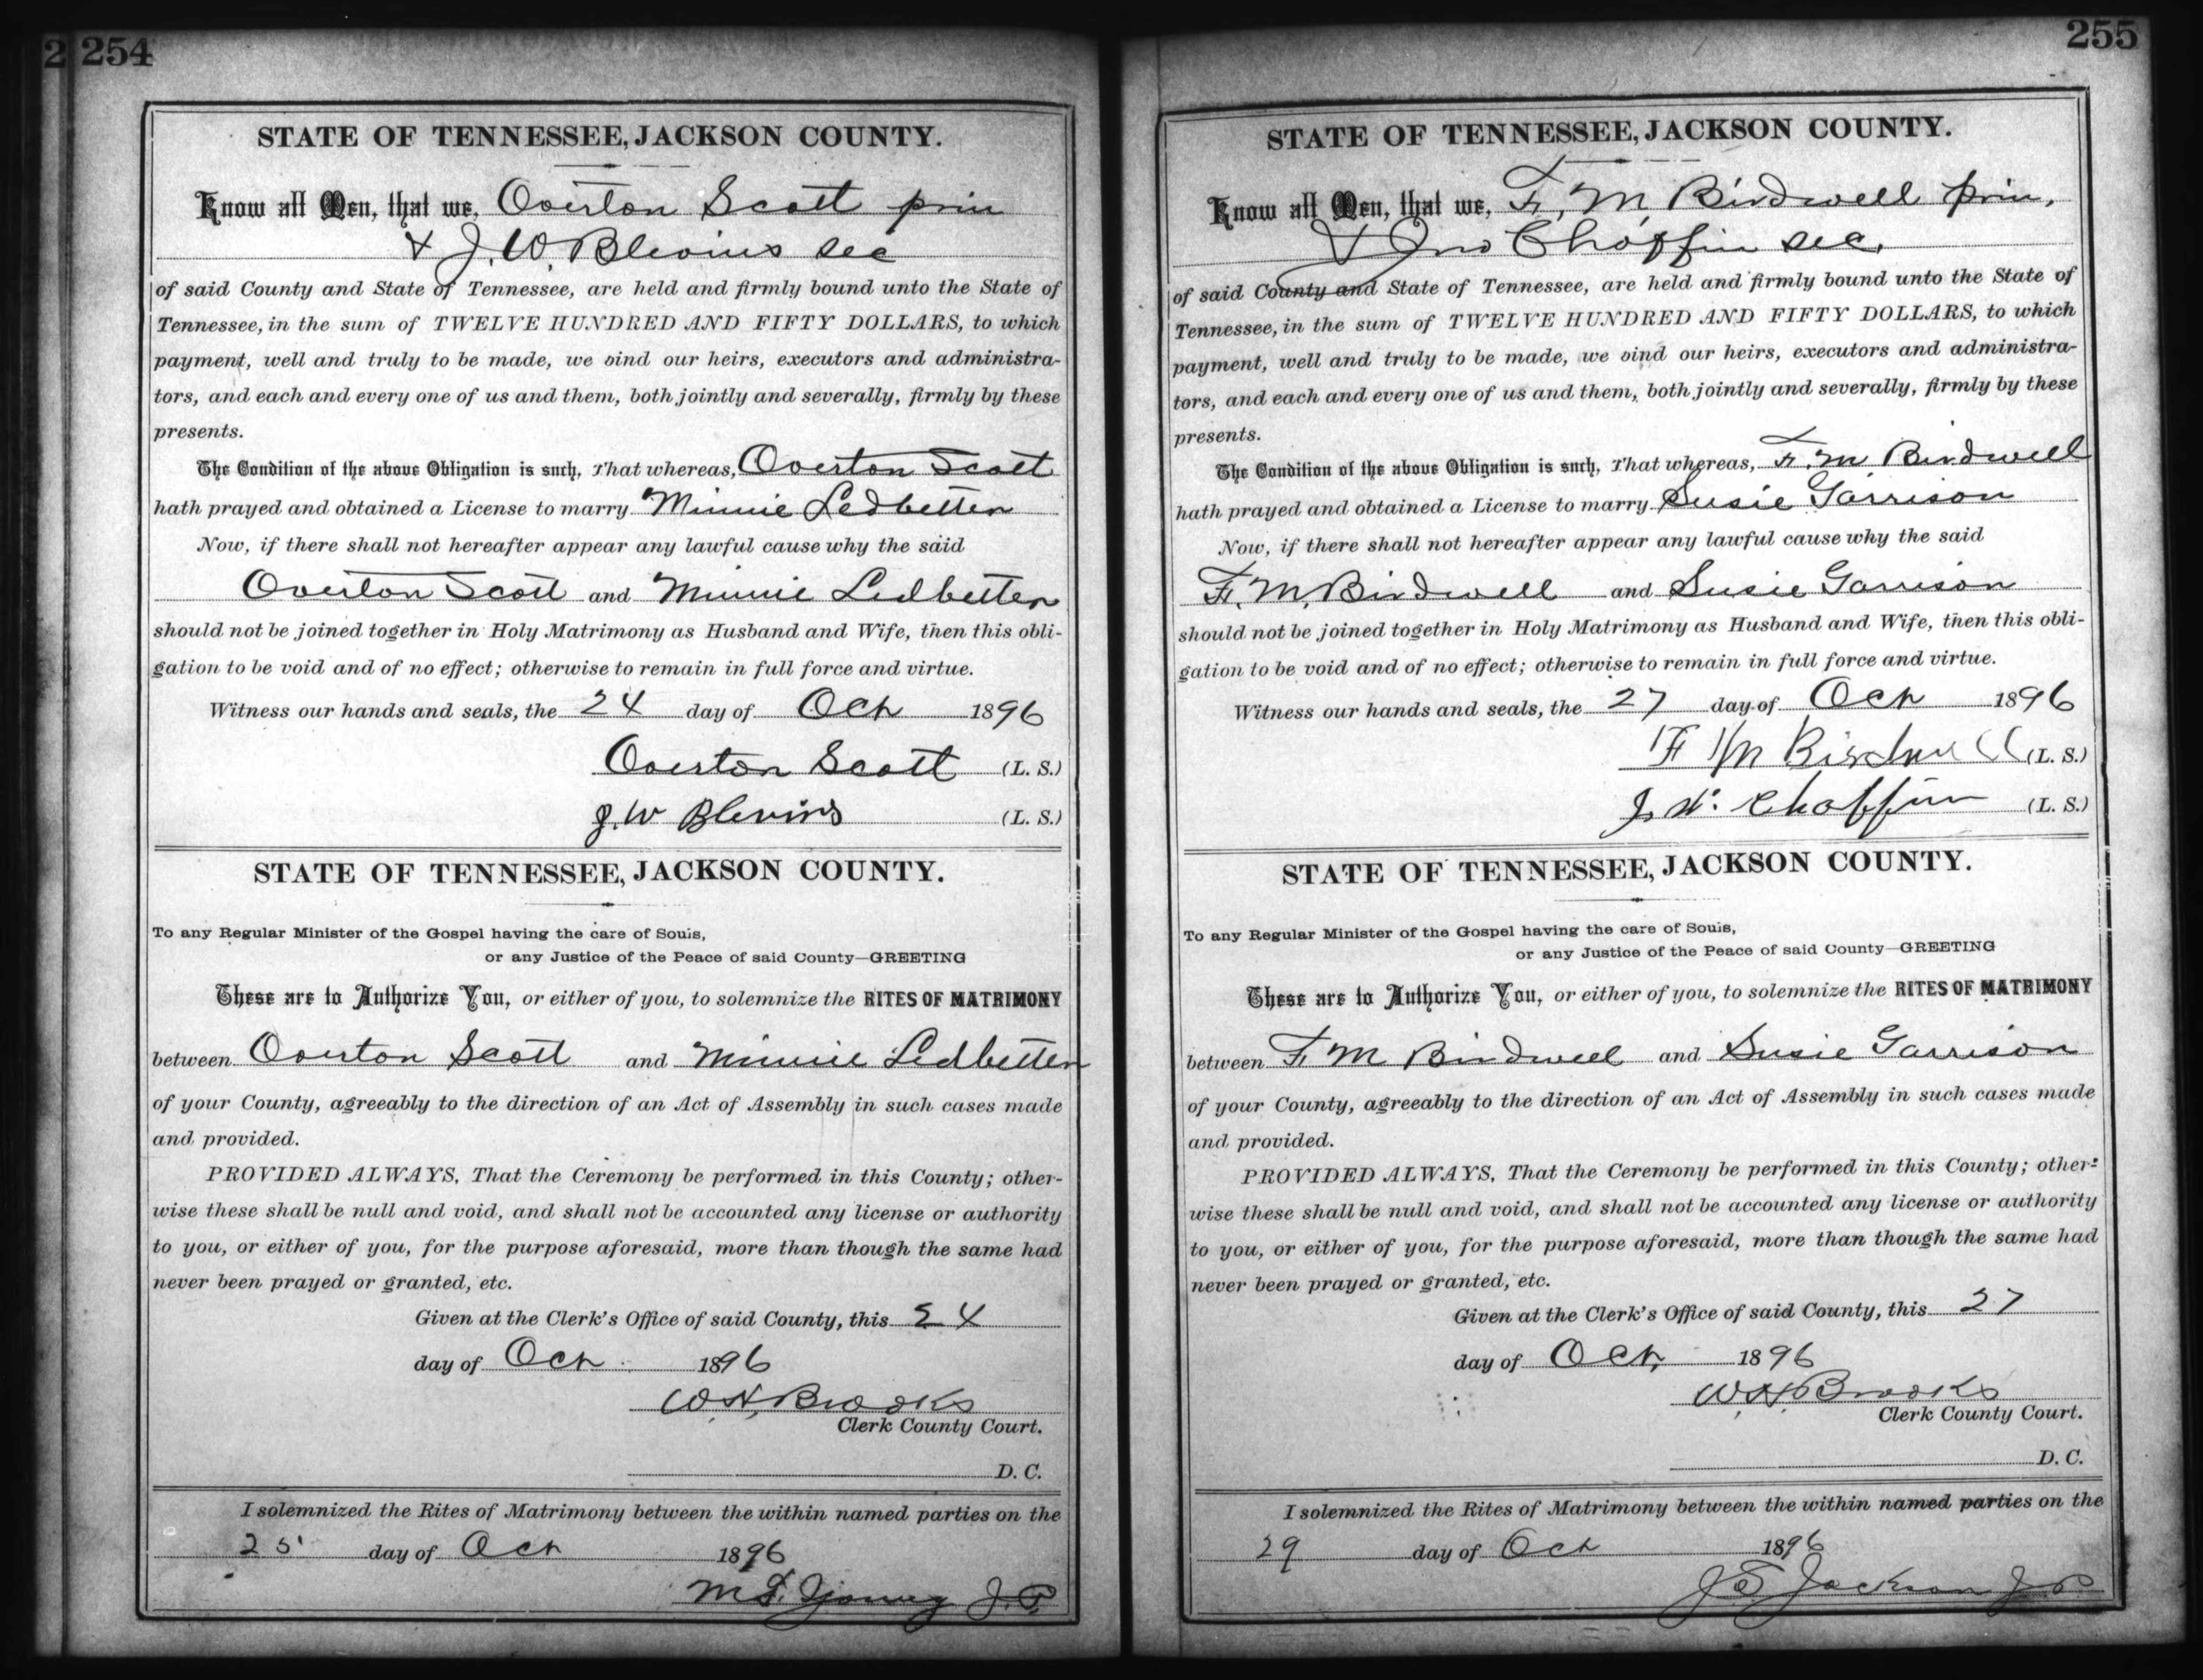 2 254
STATE OF TENNESSEE, JACKSON COUNTY.
Know all Men, that we, Overton Scott prin
& J. W. Blevins sec
of said County and State of Tennessee, are held and firmly bound unto the State of
Tennessee, in the sum of TWELVE HUNDRED AND FIFTY DOLLARS, to which
payment, well and truly to be made, we bind our heirs, executors and administra-
tors, and each and every one of us and them, both jointly and severally, firmly by these
presents.
The Condition of the above Obligation is such, That whereas, Overton Scott
hath prayed and obtained a License to marry Minnie Ledbetter
Now, if there shall not hereafter appear any lawful cause why the said
Overton Scott and Minnie Ledbetter
should not be joined together in Holy Matrimony as Husband and Wife, then this obli-
gation to be void and of no effect; otherwise to remain in full force and virtue.
Witness our hands and seals, the 24 day of Oct 1896
Overton Scott (L. S.)
J. W Blevins (L. S.)
STATE OF TENNESSEE, JACKSON COUNTY.
To any Regular Minister of the Gospel having the care of Souls,
or any Justice of the Peace of said County—GREETING
These are to Authorize You, or either of you, to solemnize the RITES OF MATRIMONY
between Overton Scott and Minnie Ledbetter
of your County, agreeably to the direction of an Act of Assembly in such cases made
and provided.
PROVIDED ALWAYS, That the Ceremony be performed in this County; other-
wise these shall be null and void, and shall not be accounted any license or authority
to you, or either of you, for the purpose aforesaid, more than though the same had
never been prayed or granted, etc.
Given at the Clerk's Office of said County, this 24
day of Oct 1896
W. H. Brooks
Clerk County Court.
D. C.
I solemnized the Rites of Matrimony between the within named parties on the
25 day of Oct 1896
Young J. P.
255
STATE OF TENNESSEE, JACKSON COUNTY.
Know all Men, that we, F. M. Birdwell prin,
& Jno Chaffin sec,
of said County and State of Tennessee, are held and firmly bound unto the State of
Tennessee, in the sum of TWELVE HUNDRED AND FIFTY DOLLARS, to which
payment, well and truly to be made, we bind our heirs, executors and administra-
tors, and each and every one of us and them, both jointly and severally, firmly by these
presents.
The Condition of the above Obligation is such, That whereas, F. M. Birdwell
hath prayed and obtained a License to marry Susie Garrison
Now, if there shall not hereafter appear any lawful cause why the said
F. M. Birdwell and Susie Garrison
should not be joined together in Holy Matrimony as Husband and Wife, then this obli-
gation to be void and of no effect; otherwise to remain in full force and virtue.
Witness our hands and seals, the 27 day of Oct 1896
F M Birdwell (L. S.)
Chaffin (L. S.)
STATE OF TENNESSEE, JACKSON COUNTY.
To any Regular Minister of the Gospel having the care of Souls,
or any Justice of the Peace of said County—GREETING
These are to Authorize You, or either of you, to solemnize the RITES OF MATRIMONY
between F M Birdwell and Susie Garrison
of your County, agreeably to the direction of an Act of Assembly in such cases made
and provided.
PROVIDED ALWAYS, That the Ceremony be performed in this County; other-
wise these shall be null and void, and shall not be accounted any license or authority
to you, or either of you, for the purpose aforesaid, more than though the same had
never been prayed or granted, etc.
Given at the Clerk's Office of said County, this 27
day of Oct, 1896
W. H. Brooks
Clerk County Court.
D. C.
I solemnized the Rites of Matrimony between the within named parties on the
29 day of Oct 1896
Jackson J P